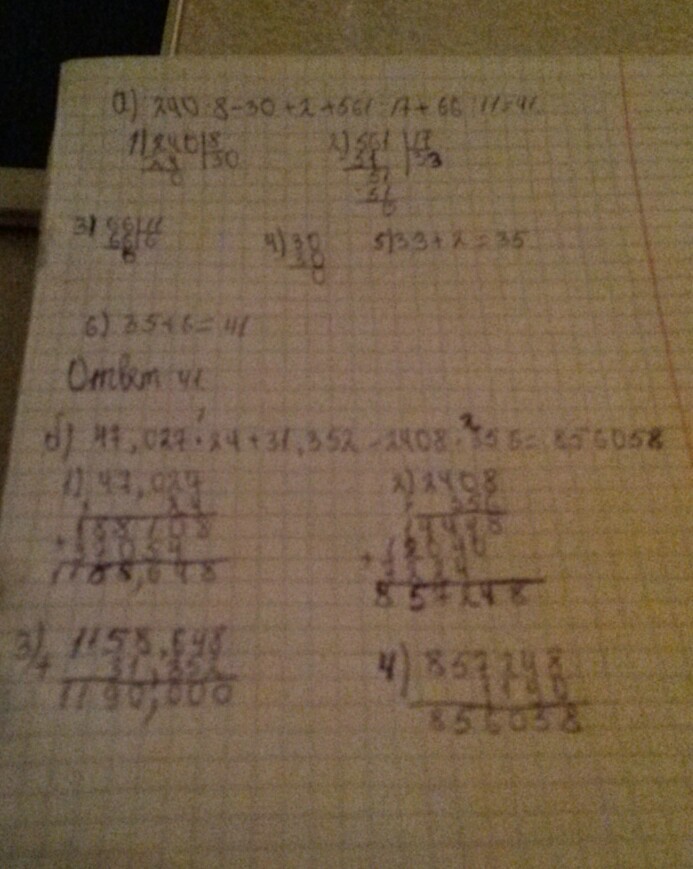 а) 240:8-30+2+561:17+66:11=41.
1) 240 8 2) 561 17
24 30 51 33
0 51
51
0
3) 66 11 4) 30 5) 33+2=35
66 6 30
0 0
6) 35+6=41
Ответ: 41.
б) 47,027·24+31,352-2408·356=856058
1) 47,027 2) 2408
24 356
+188108 14448
94054 +12040
1158,648 7224
857248
3) 1158,648 4) 857248
+31,352 1190
1190,000 856058